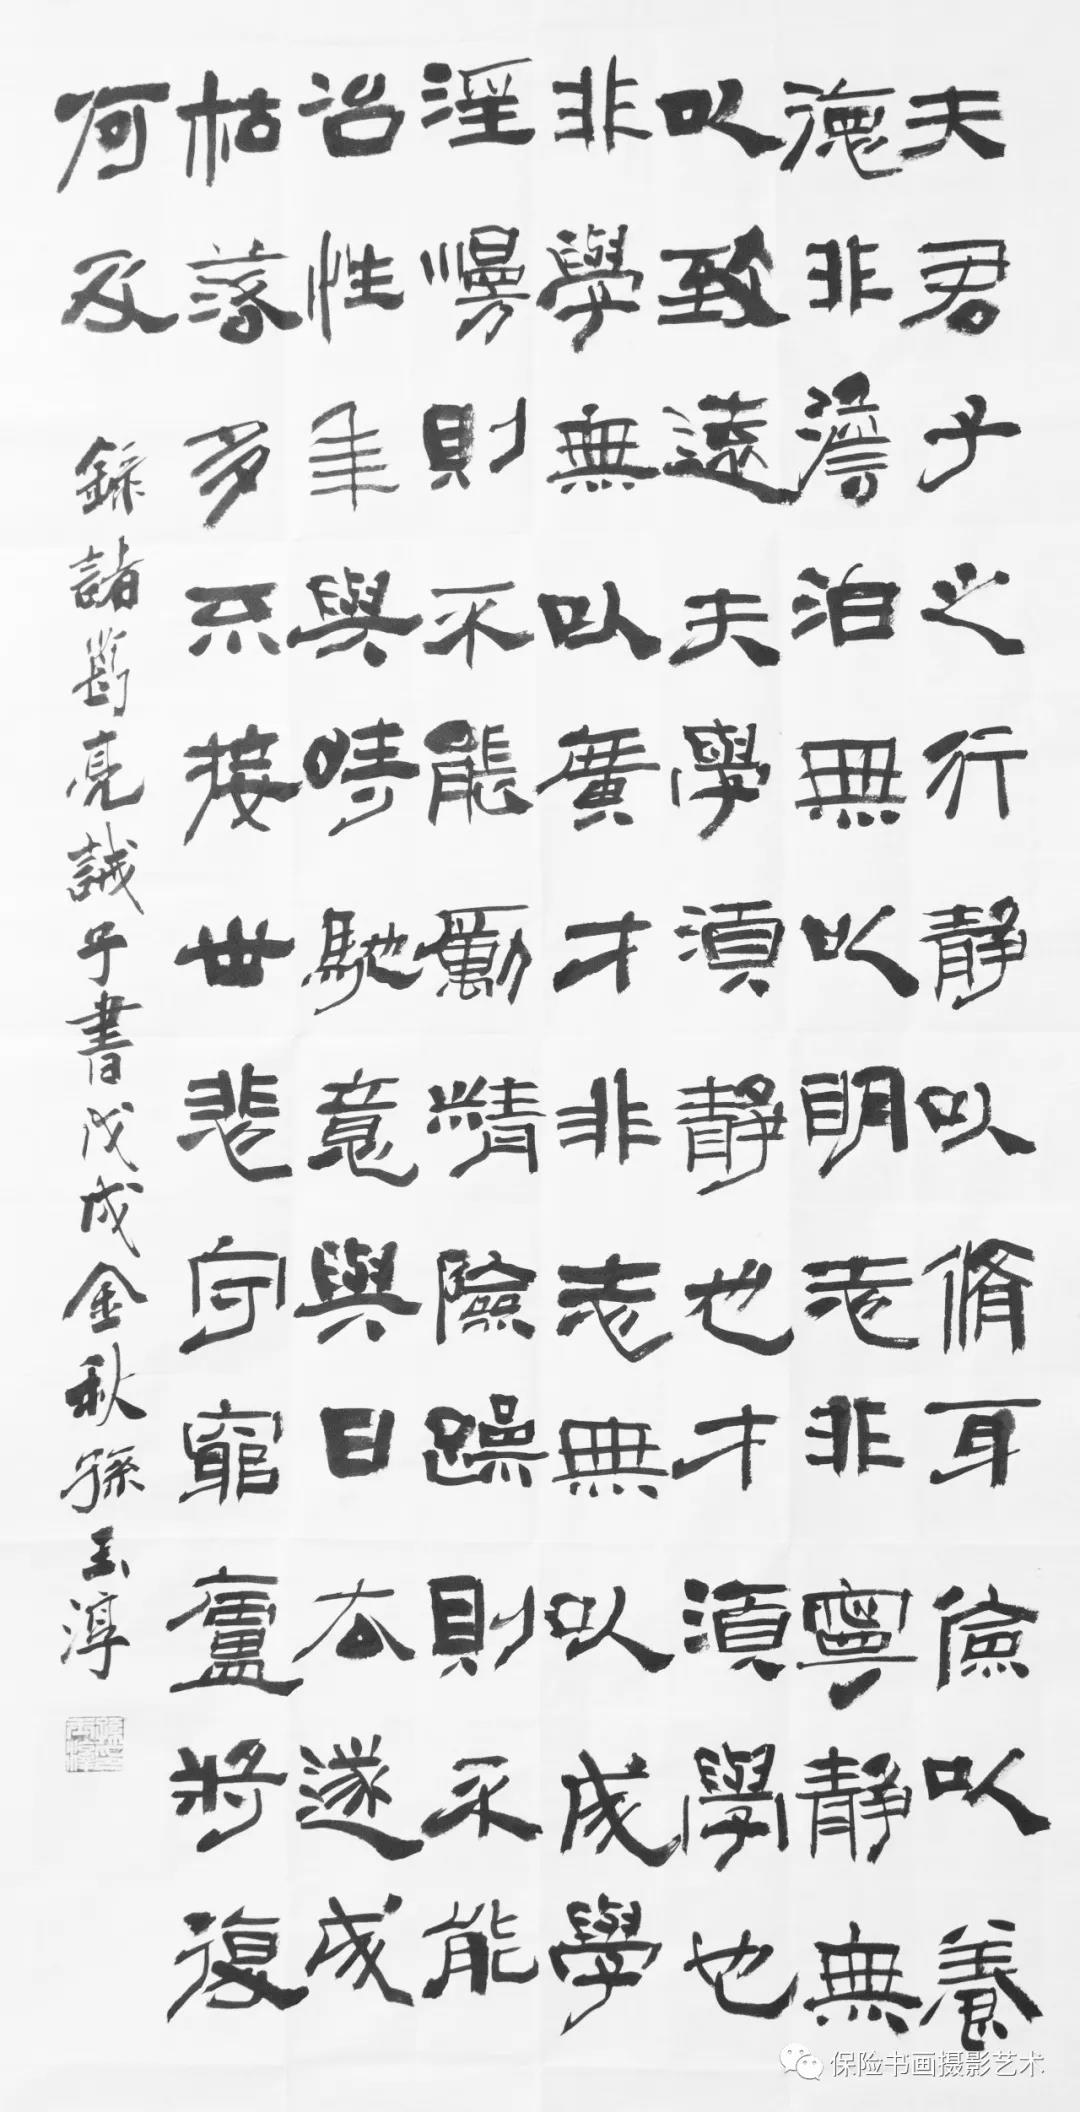 夫君子之行静以脩身儉以養
德非澹泊無以明志非寧静無
以致遠夫學須静也才須學也
非學無以廣才非志無以成學
淫慢則不能勵精險躁則不能
治性年與時馳意與日去遂成
枯落多不接世悲守窮廬將復
何及
錄諸葛亮誡子書戊戌金秋孫玉淳
保险书画摄影艺术